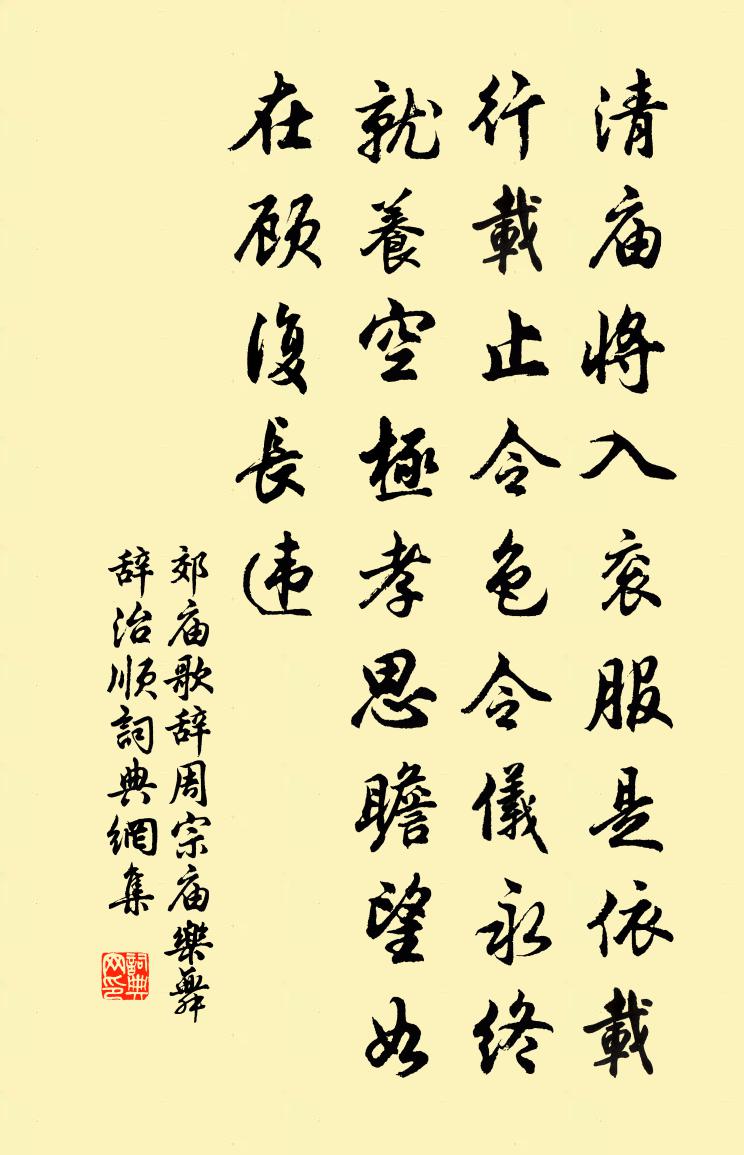 清庙将入衮服是依載
行載止令色令儀永終
就養空極孝思瞻望如
在顾復長违
郊庙歌辞周宗庙樂舞
辞治順詞典網集
詞典网印